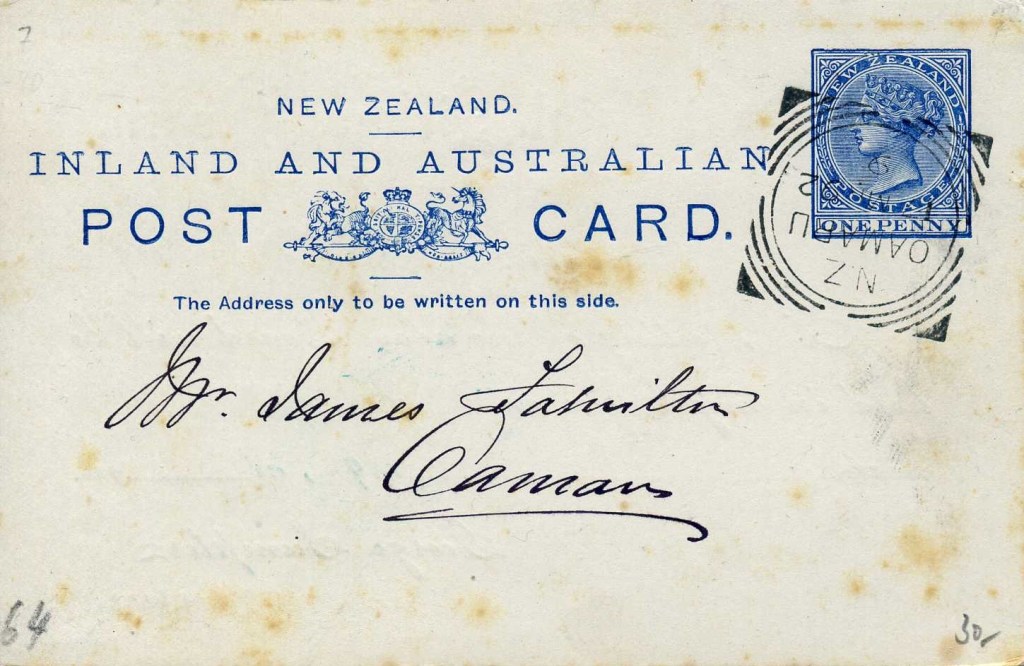 7
NEW ZEALAND.
INLAND AND AUSTRALIAN
POST CARD.
The Address only to be written on this side.
NEW ZEALAND
POSTAGE
ONE PENNY
NZ
OAMARU
Mr. James
Oamaru
64
30